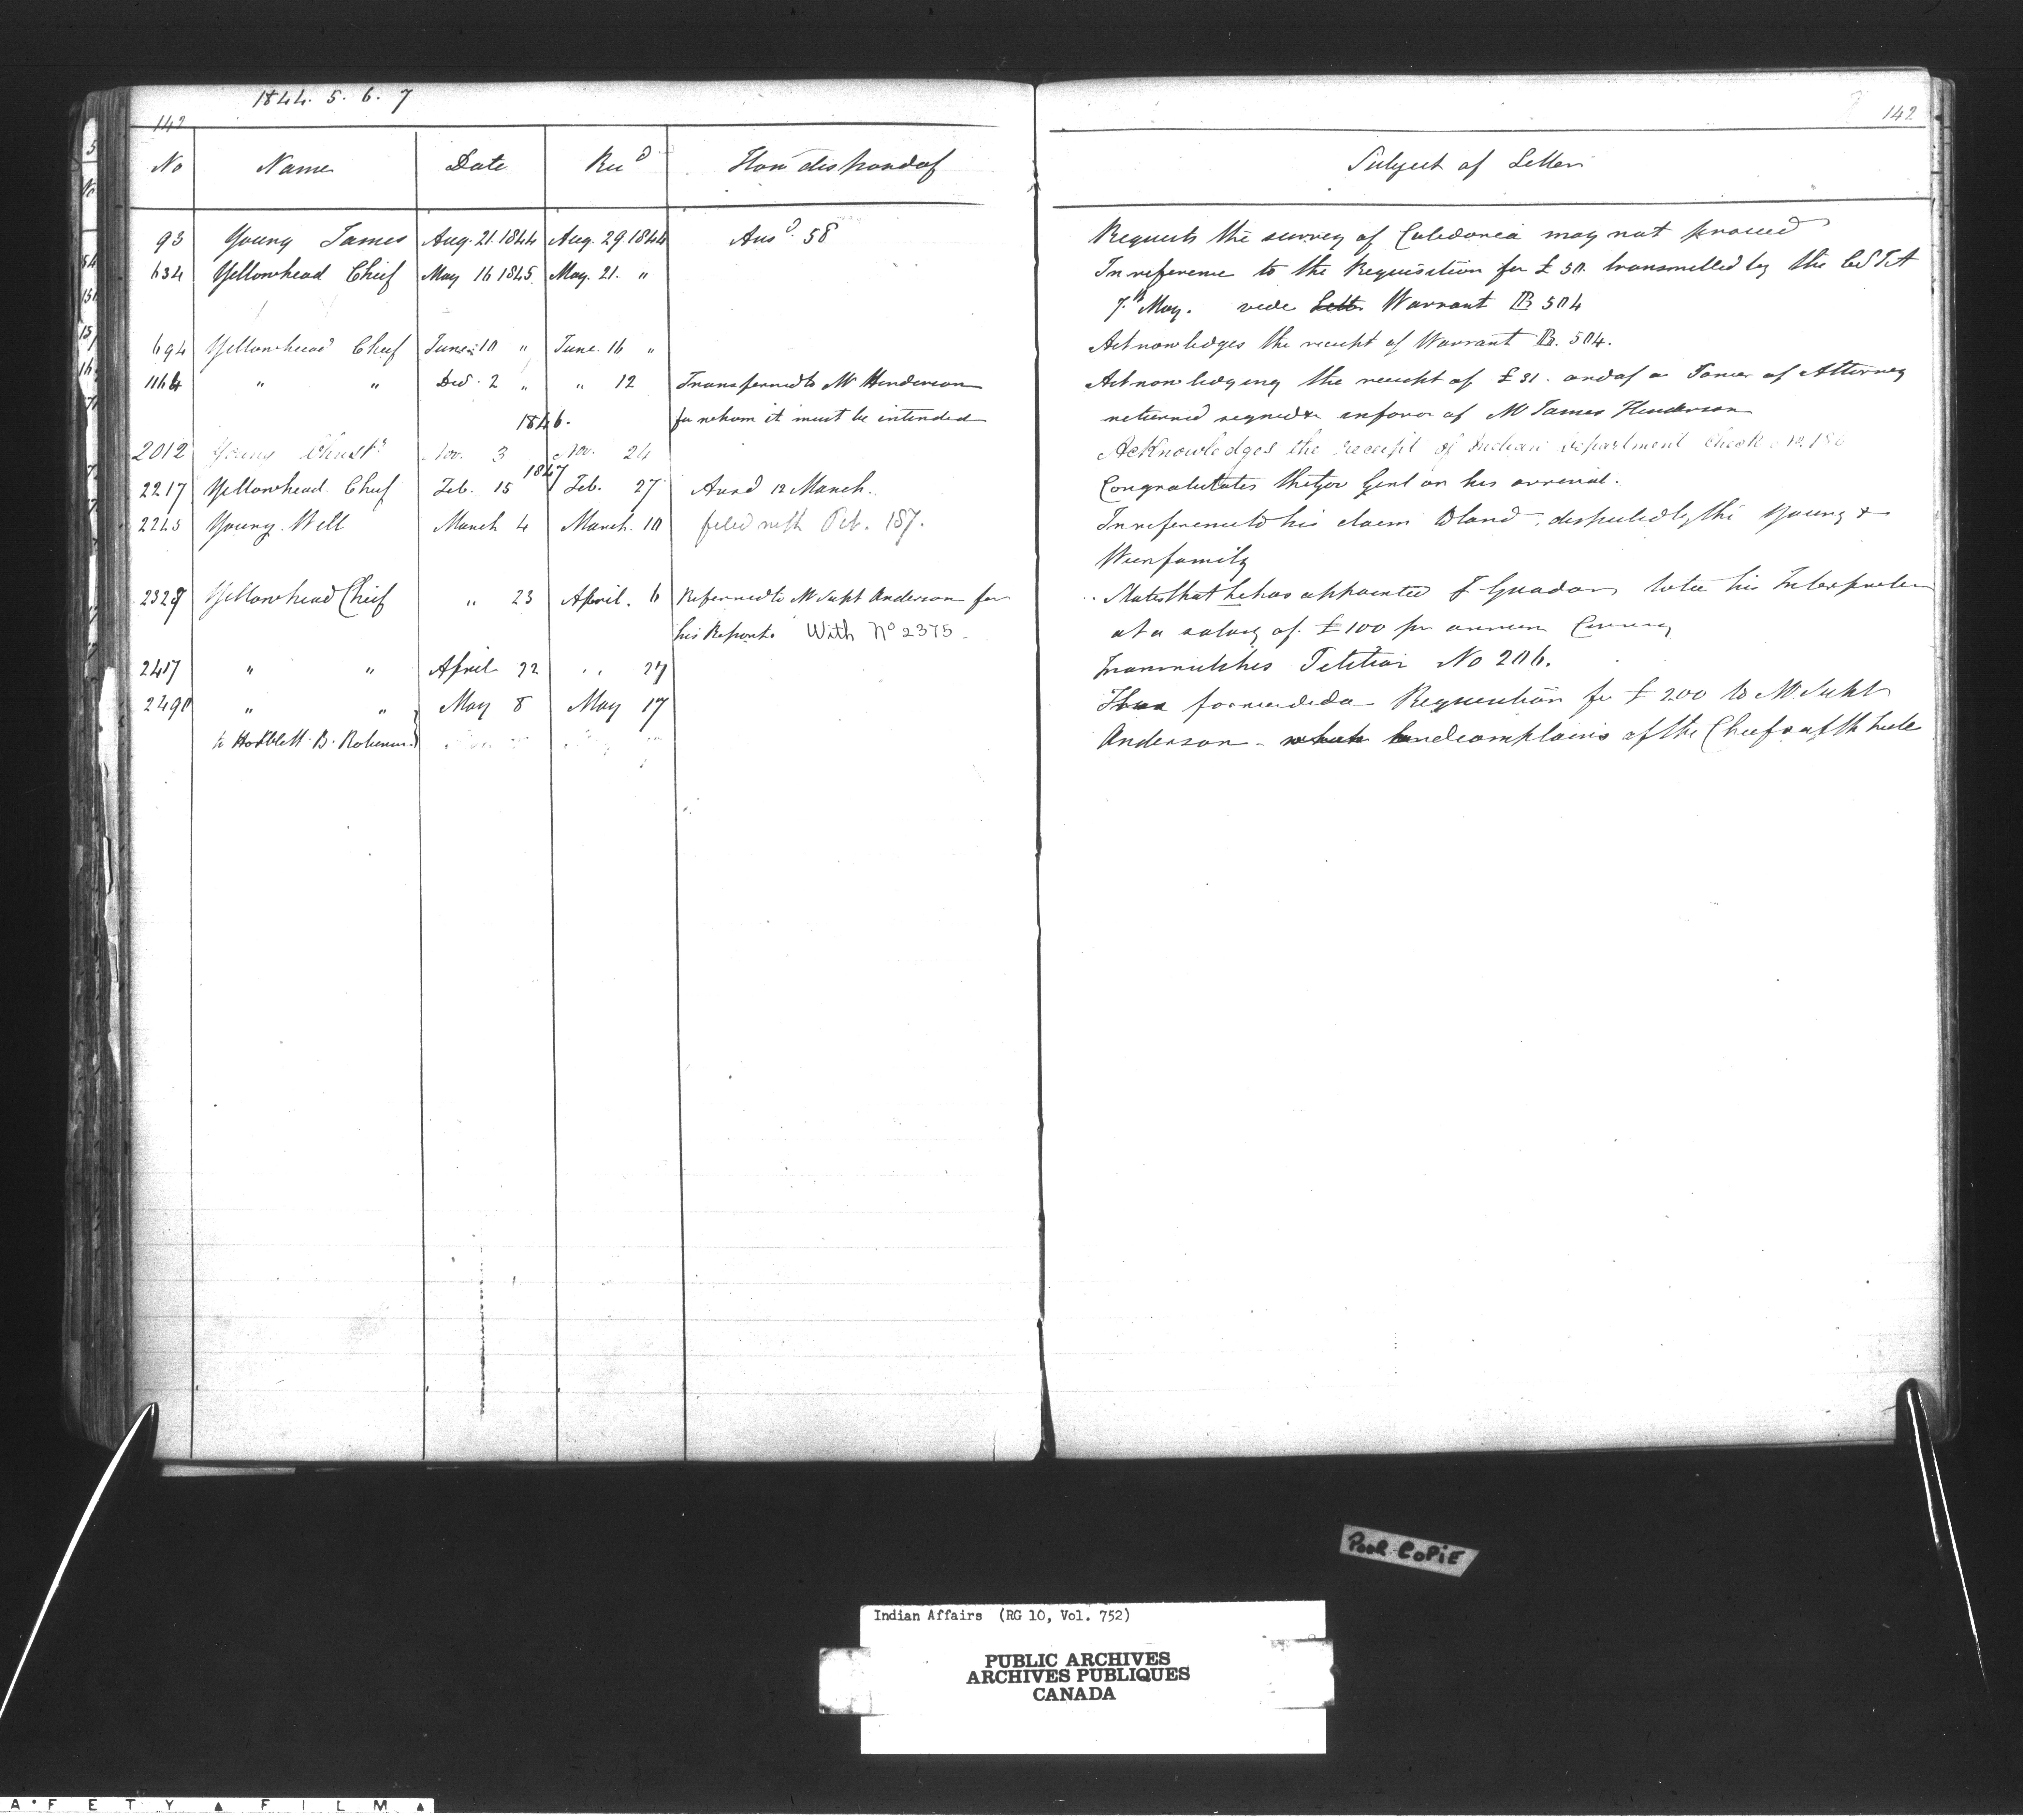 1844. 5. 6. 7
142
142
No Name Date Rec^d How disposed of
Subject of Letter
93 Young James Aug. 21. 1844 Aug. 29. 1844 Ans^d. 58
Requests the survey of Caledonia may not proceed
634 Yellowhead Chief May 16 1845. May. 21. "
In reference to the Requisition for £50. transmitted by the
7^th May. vide Letter Warrant B 504
694 Yellowhead Chief June. 10 " June. 16 "
Acknowledges the receipt of Warrant B. 504.
1164 " " Dec. 2 " " 12 Transferred to Mr Henderson
Acknowledging the receipt of £31. and of a Power of Attorney
for whom it must be intended
returned signed in favor of Mr James Henderson
1846.
2012 Young Nov. 3 Nov. 24
Acknowledges the receipt of Indian Department Check No.
1847
2217 Yellowhead Chief Feb. 15 Feb. 27 Ansd 12 March.
Congratulates the Gov Genl on his arrival.
2245 Young Will March 4 March. 10 filed with Pet. 157.
In reference to his claim to land, disputed by the Young &
family
2327 Yellowhead Chief " 23 April. 6 Referred to Mr Supt Anderson for
States that he has appointed J to be his Interpreter
his Report. With No 2375.
at a salary of £100 per annum Currency
2417 " " April 22 " 27
Transmits his Petition No 206.
2490 " " May 8 May 17
Has forwarded a Requisition for £200 to Mr Supt
to Honble W. B. Robinson
Anderson - and complains of the Chiefs of the
POOR COPIE
Indian Affairs (RG 10, Vol. 752)
PUBLIC ARCHIVES
ARCHIVES PUBLIQUES
CANADA
A F E T Y ▲ F I L M ▲